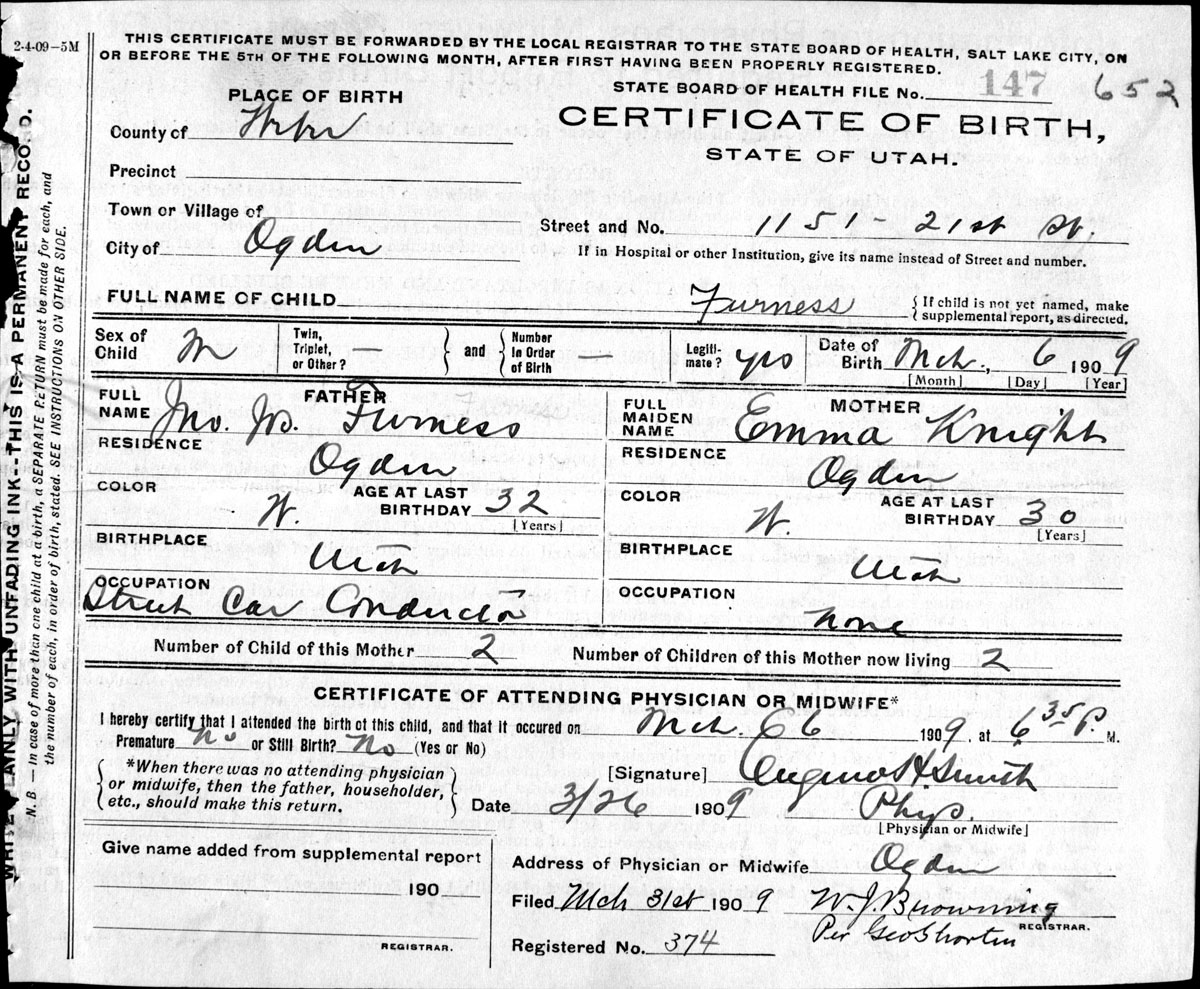 2-4-09—5M
THIS CERTIFICATE MUST BE FORWARDED BY THE LOCAL REGISTRAR TO THE STATE BOARD OF HEALTH, SALT LAKE CITY, ON
OR BEFORE THE 5TH OF THE FOLLOWING MONTH, AFTER FIRST HAVING BEEN PROPERLY REGISTERED.
STATE BOARD OF HEALTH FILE No. 147 652
PLACE OF BIRTH
CERTIFICATE OF BIRTH,
STATE OF UTAH.
County of Weber
Precinct
Town or Village of
Street and No. 1151 - 21st St.
City of Ogden
If in Hospital or other Institution, give its name instead of Street and number.
FULL NAME OF CHILD Furness { If child is not yet named, make
supplemental report, as directed.
Sex of
Child M
Twin,
Triplet,
or Other? —
and
Number
In Order
of Birth —
Legiti-
mate? yes
Date of
Birth Mch., 6 1909
[Month] [Day] [Year]
FATHER
FULL
NAME Jno. W. Furness
RESIDENCE
Ogden
COLOR W.
AGE AT LAST
BIRTHDAY 32
[Years]
BIRTHPLACE
Utah
OCCUPATION
Street Car Conductor
MOTHER
FULL
MAIDEN
NAME Emma Knight
RESIDENCE
Ogden
COLOR W.
AGE AT LAST
BIRTHDAY 30
[Years]
BIRTHPLACE
Utah
OCCUPATION
None
Number of Child of this Mother 2
Number of Children of this Mother now living 2
CERTIFICATE OF ATTENDING PHYSICIAN OR MIDWIFE*
I hereby certify that I attended the birth of this child, and that it occured on Mch. 6 1909, at 6 35 P. M.
Premature No or Still Birth? No (Yes or No)
*When there was no attending physician
or midwife, then the father, householder,
etc., should make this return.
[Signature] H Smith
Date 3/26 1909 Phys.
[Physician or Midwife]
Give name added from supplemental report
190
REGISTRAR.
Address of Physician or Midwife Ogden
Filed Mch 31st 1909 W. J. Browning
REGISTRAR.
Per Geo Shorten
Registered No. 374
WRITE PLAINLY WITH UNFADING INK—THIS IS A PERMANENT RECORD.
N. B.—In case of more than one child at a birth, a SEPARATE RETURN must be made for each, and
the number of each, in order of birth, stated. SEE INSTRUCTIONS ON OTHER SIDE.